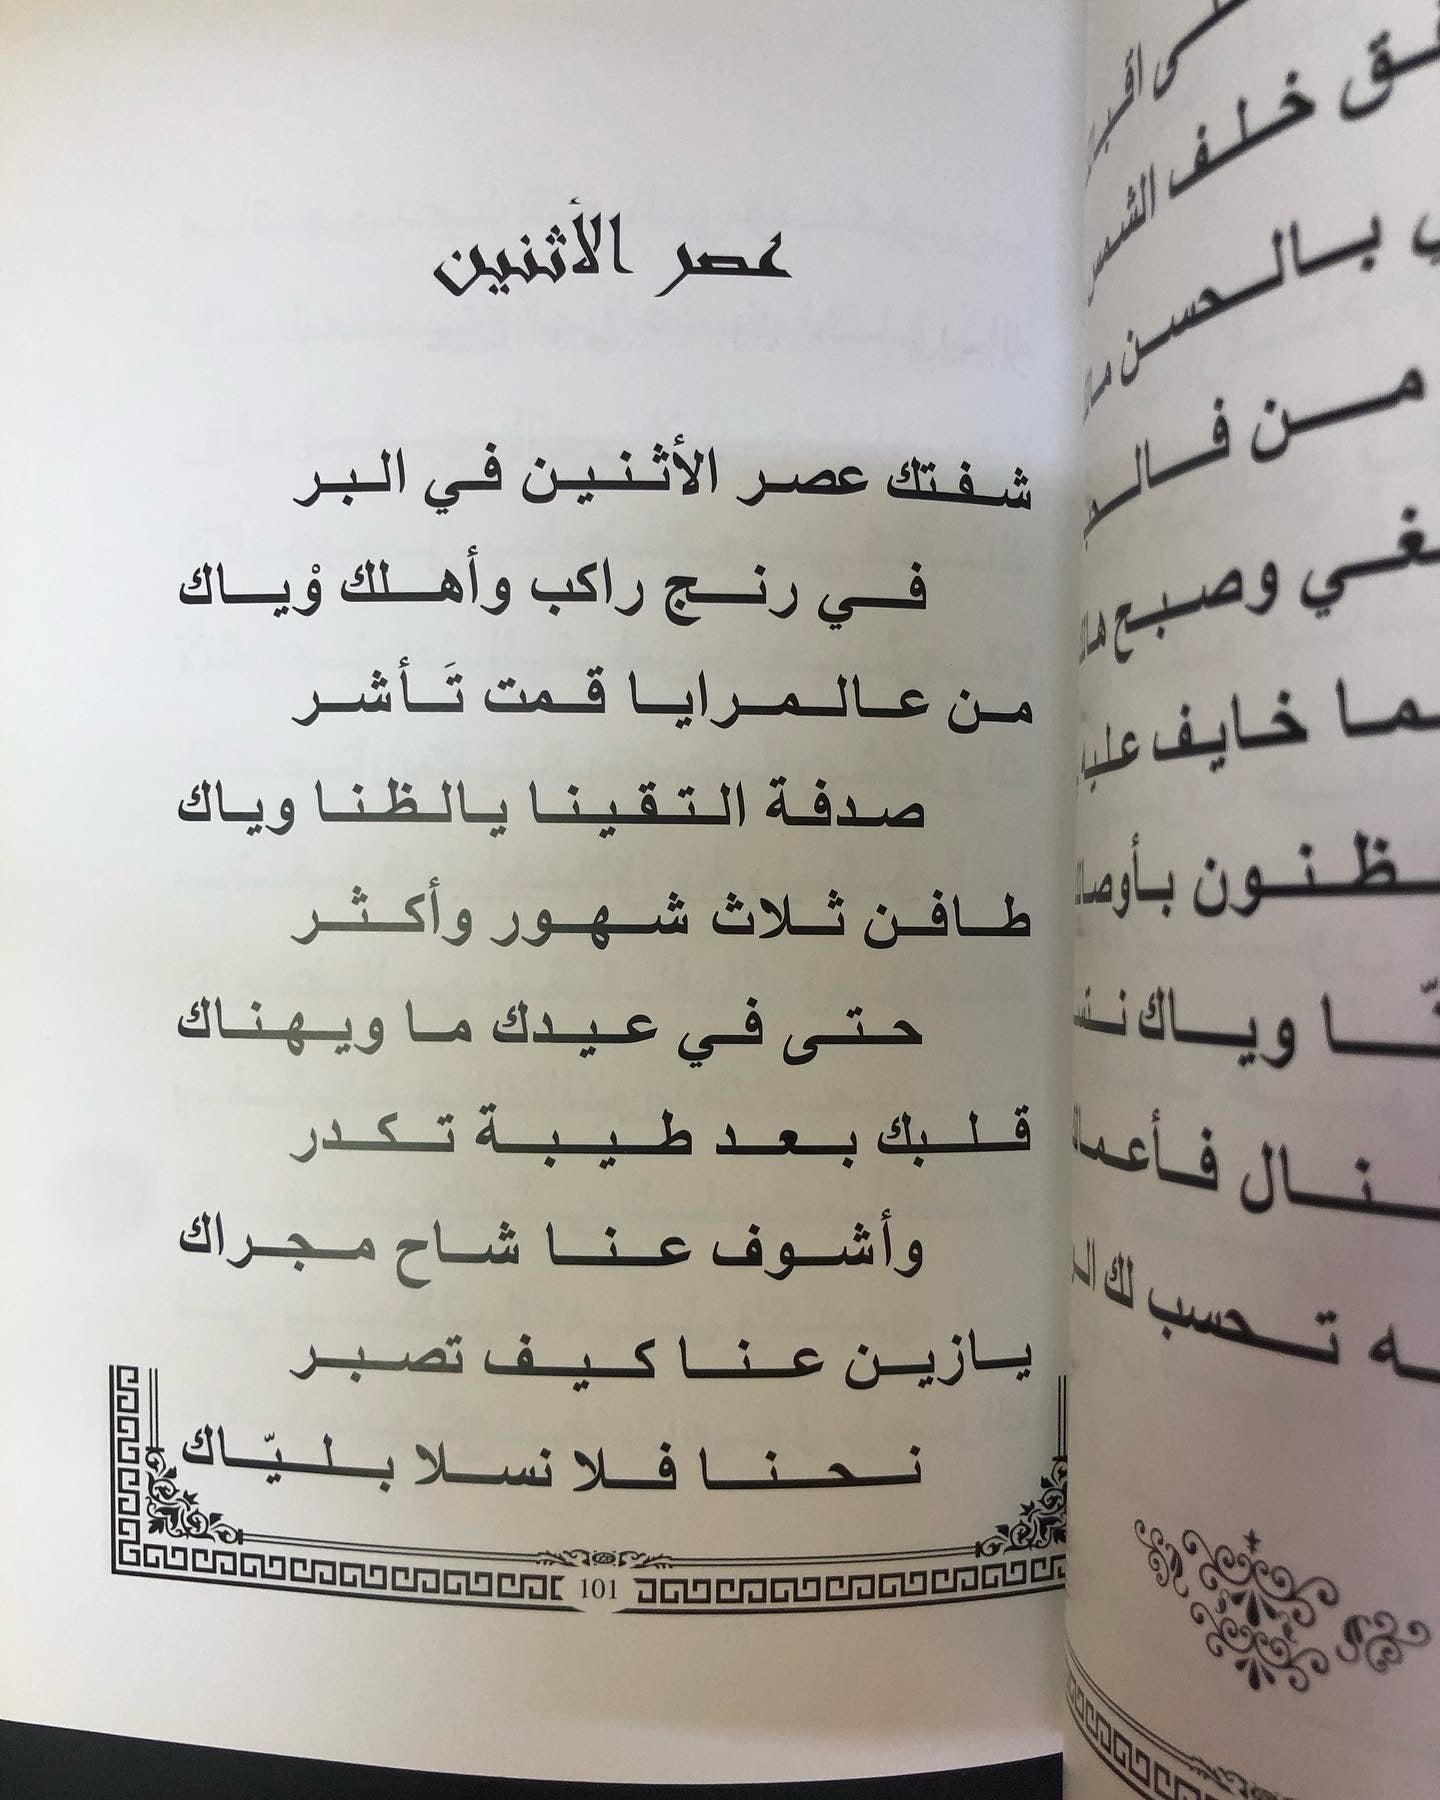 عصر الأثنين
شفتك عصر الأثنين في البر
في رنج راكب وأهلك وْياك
من عالمرايا قمت تَأشر
صدفة التقينا يالظنا وياك
طافن ثلاث شهور وأكثر
حتى في عيدك ما ويهناك
قلبك بعد طيبة تكدر
وأشوف عنا شاح مجراك
يازين عنا كيف تصبر
نحنا فلا نسلا بليّاك
101
خلف الشمس
بالحسن
من
وصبح
خايف عليه
وياك
تحسب لك